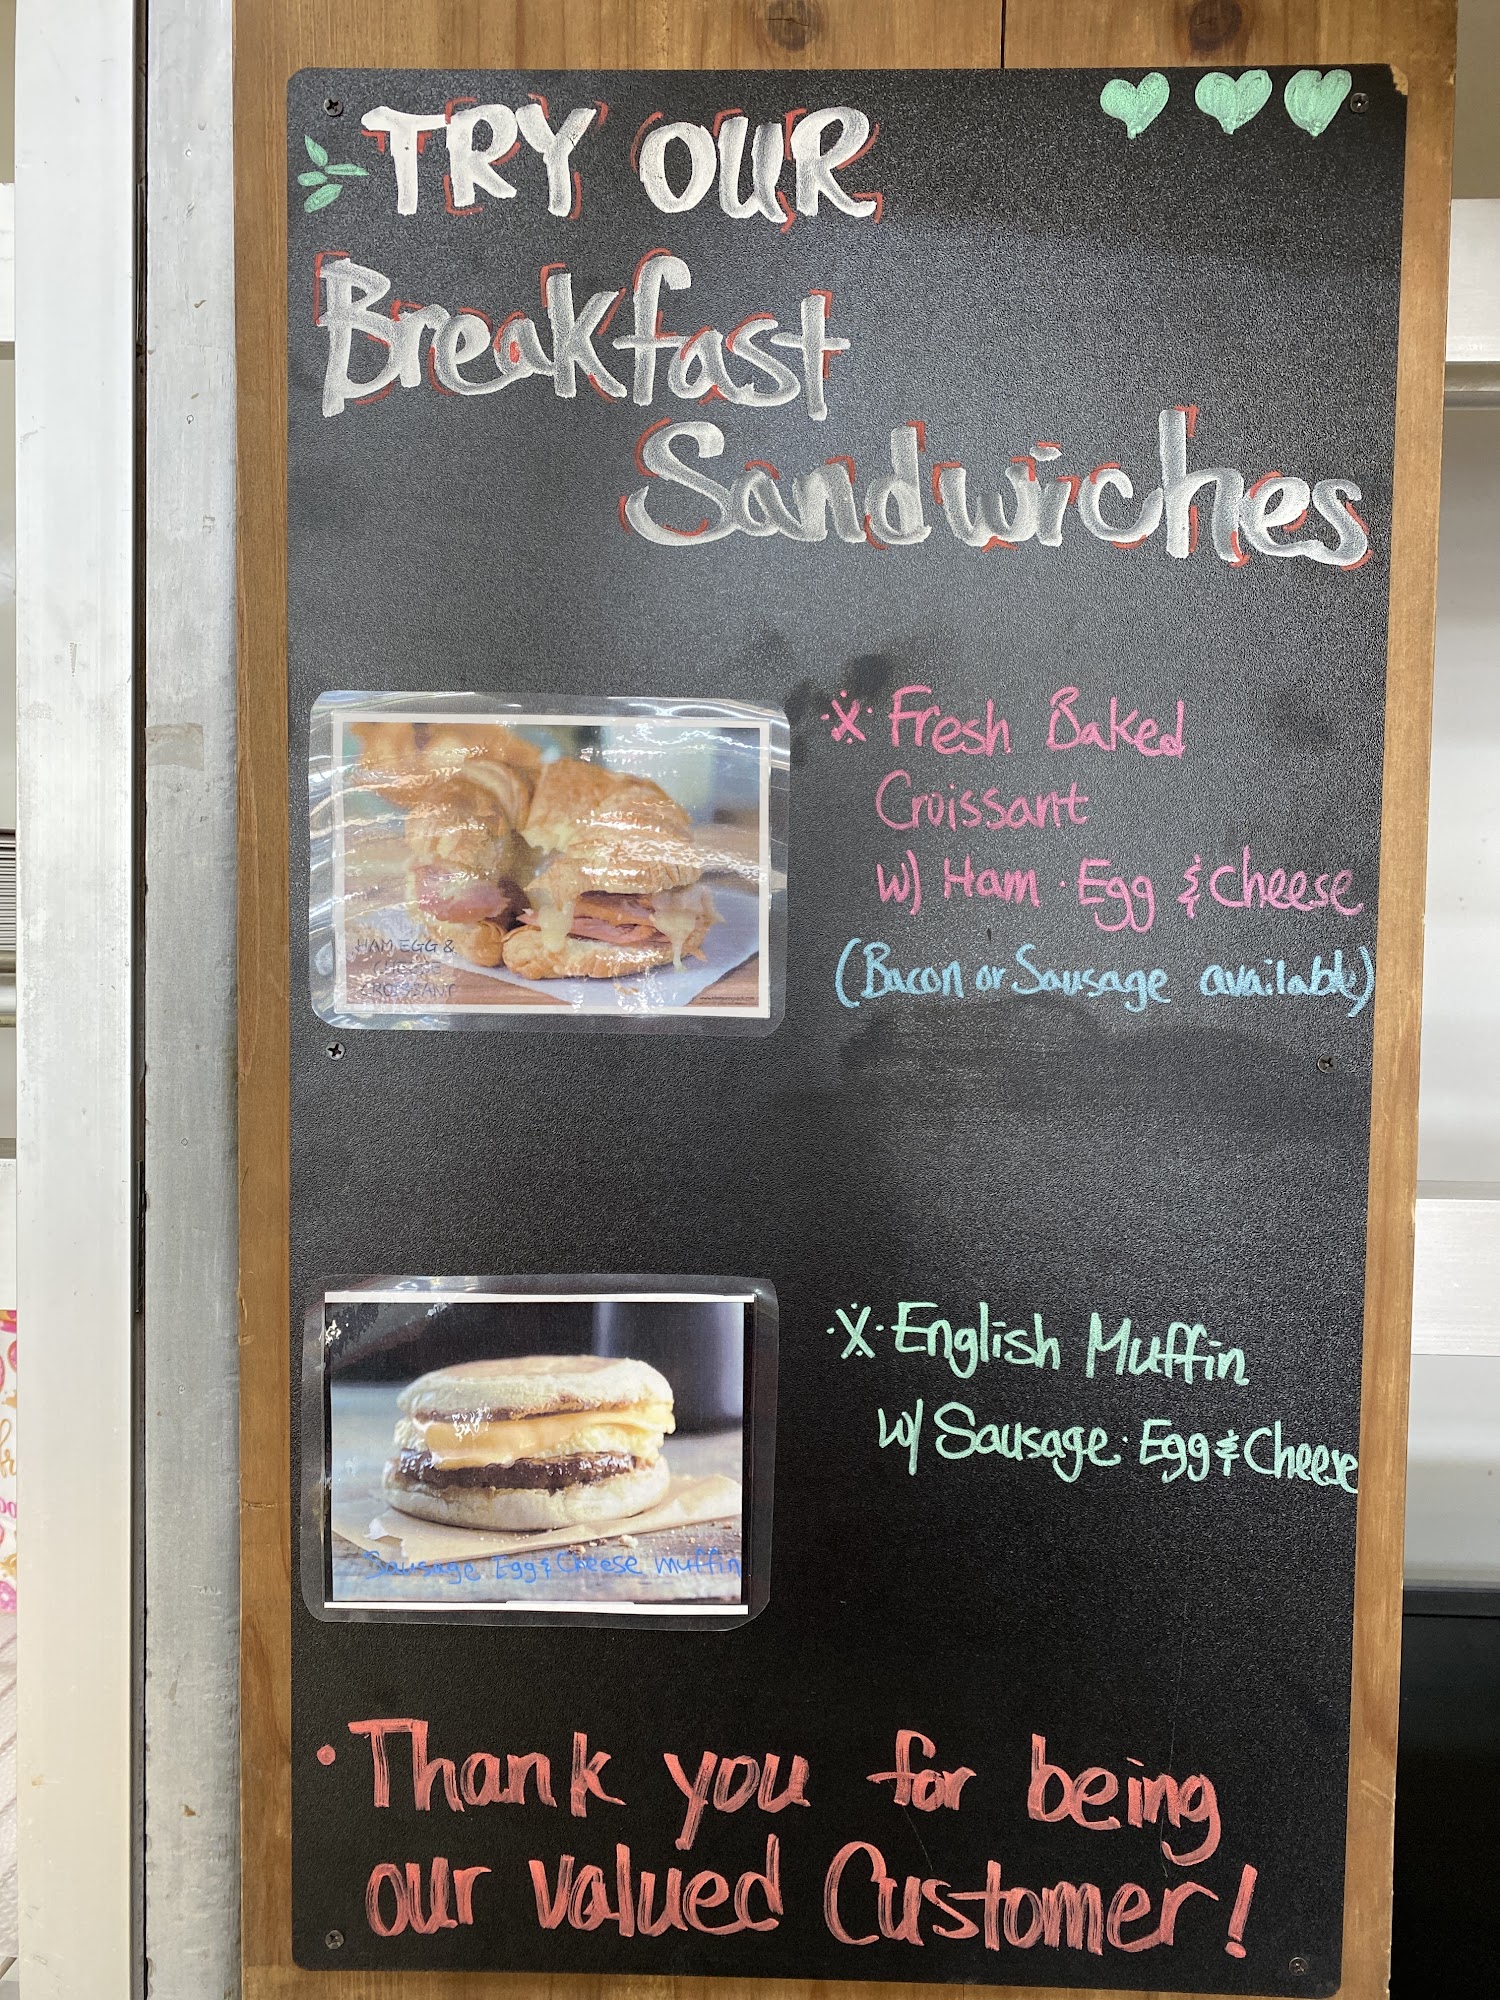 TRY OUR
Breakfast
Sandwiches
Fresh Baked
Croissant
w/ Ham · Egg & Cheese
(Bacon or Sausage available)
HAM EGG &
CHEESE
CROISSANT
English Muffin
w/ Sausage · Egg & Cheese
Sausage Egg & Cheese muffin
• Thank you for being
our valued Customer!